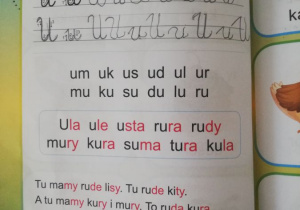 U u U U u U u U u
um uk us ud ul ur
mu ku su du lu ru
Ula ule usta rura rudy
mury kura suma tura kula
Tu mamy rude lisy. Tu rude kity.
A tu mamy kury i mury. To ruda kura.
ka